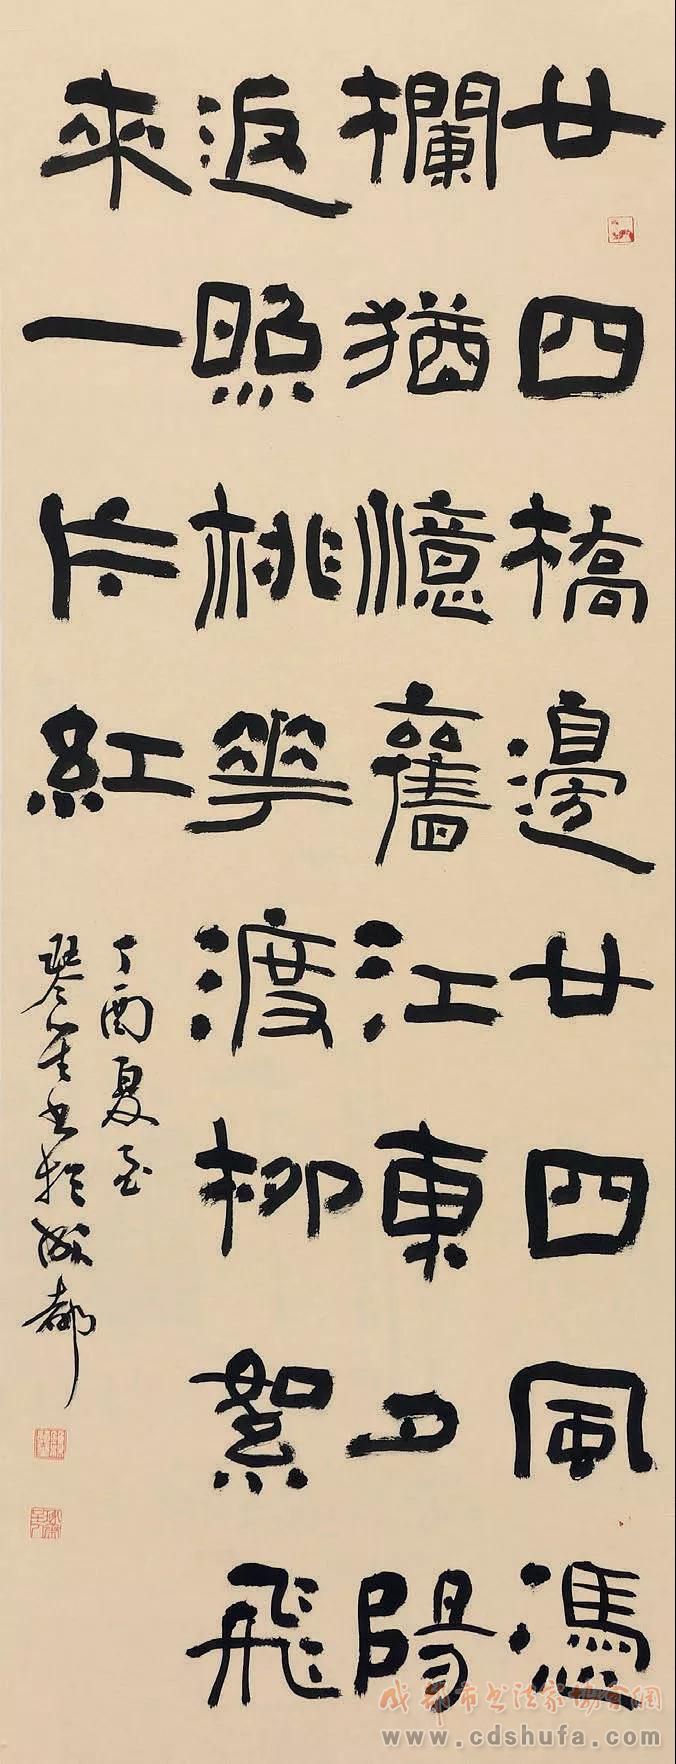 廿四橋邊廿四風馮
欄猶憶舊江東夕陽
返照桃花渡柳絮飛
來一片紅
丁酉夏至
琴书於成都
成都市书法家协会网
www.cdshufa.com